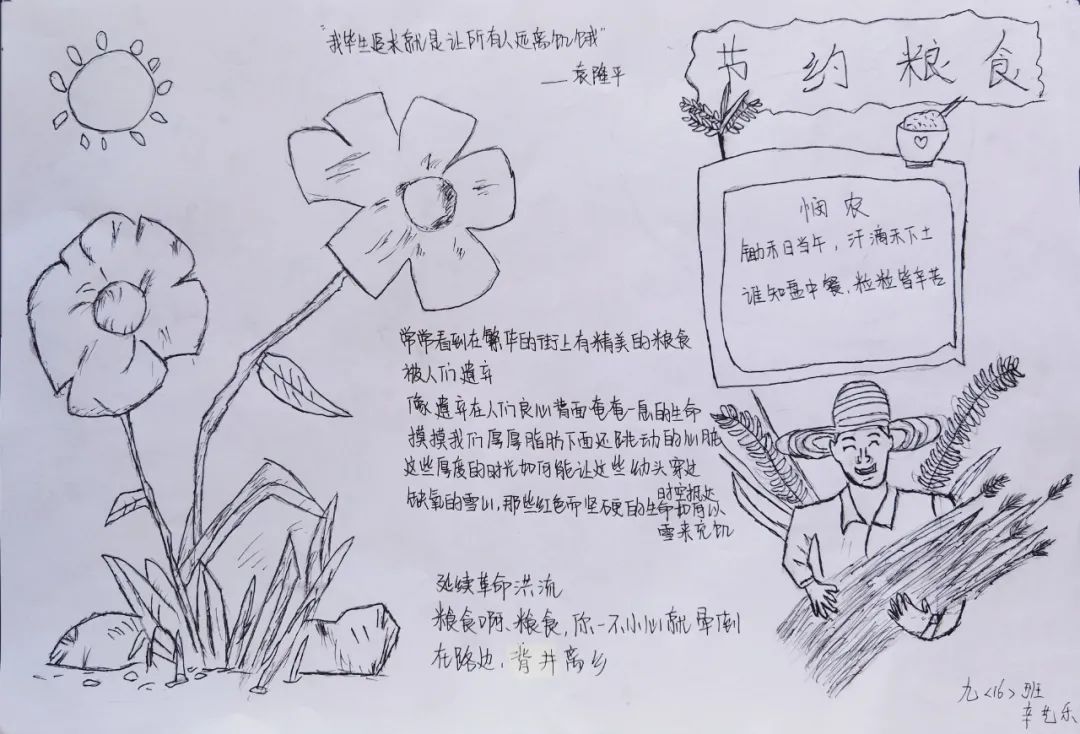 "我毕生追求就是让所有人远离饥饿"
——袁隆平
节约粮食
悯农
锄禾日当午，汗滴禾下土
谁知盘中餐，粒粒皆辛苦
常常看到在繁华的街上有精美的粮食
被人们遗弃
像遗弃在人们良心背面奄奄一息的生命
摸摸我们厚厚脂肪下面还跳动的心脏
这些厚度的时光如何能让这些幼头穿过
时空抵达
缺氧的雪山，那些红色而坚硬的生命如何以
雪来充饥
延续革命洪流
粮食啊、粮食，你一不小心就晕倒
在路边，背井离乡
九<16>班
辛艺乐